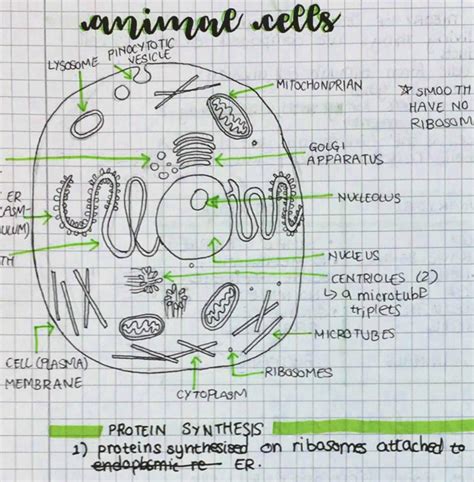 animal cells
LYSOSOME
PINOCYTOTIC
VESICLE
MITOCHONDRIAN
☆ SMOOTH
HAVE NO
RIBOSOM
GOLGI
APPARATUS
ER
NUCLEOLUS
NUCLEUS
CENTRIOLES (2)
↳ a microtube
triplets
MICROTUBES
CELL (PLASMA)
MEMBRANE
RIBOSOMES
CYTOPLASM
PROTEIN SYNTHESIS
1) proteins synthesised on ribosomes attached to
ER.